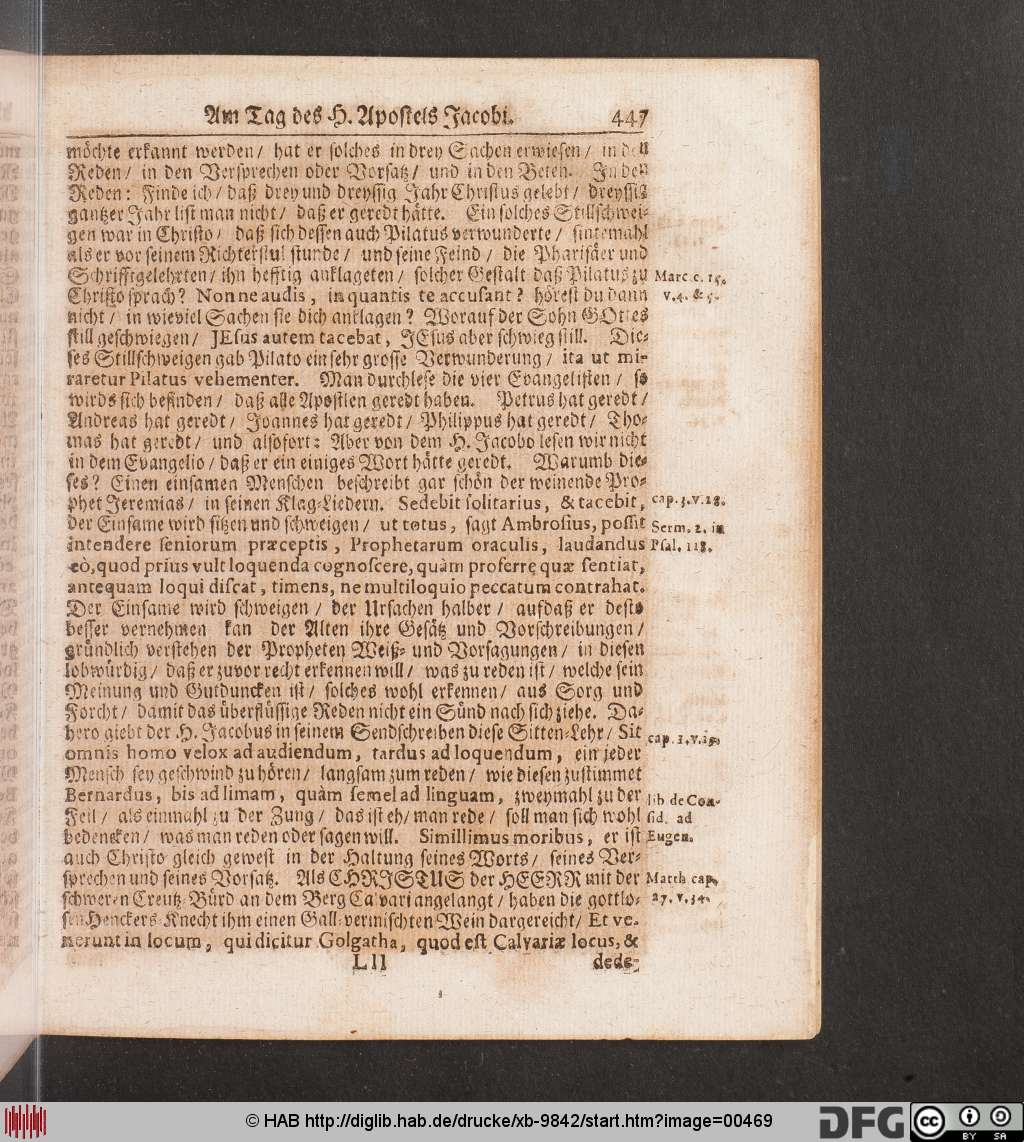 Am Tag des H. Apostels Jacobi. 447
möchte erkannt werden/ hat er solches in drey Sachen erwiesen/ in den
Reden/ in den Versprechen oder Vorsatz/ und in den Beten. In den
Reden: Finde ich/ daß drey und dreyssig Jahr Christus gelebt/ dreyssig
gantzer Jahr list man nicht/ daß er geredt hätte. Ein solches Stillschwei-
gen war in Christo/ daß sich dessen auch Pilatus verwunderte/ sintemahl
als er vor seinem Richterstul stunde/ und seine Feind/ die Pharisäer und
Schrifftgelehrten/ ihn hefftig anklageten/ solcher Gestalt daß Pilatus zu
Marc c. 15.
Christo sprach? Nonne audis, in quantis te accusant? hörest du dann
v. 4. & 5.
nicht/ in wieviel Sachen sie dich anklagen? Worauf der Sohn GOttes
still geschwiegen/ JEsus autem tacebat, JEsus aber schwieg still. Die-
ses Stillschweigen gab Pilato ein sehr grosse Verwunderung/ ita ut mi-
raretur Pilatus vehementer. Man durchlese die vier Evangelisten/ so
wirds sich befinden/ daß alle Apostlen geredt haben. Petrus hat geredt/
Andreas hat geredt/ Joannes hat geredt/ Philippus hat geredt/ Tho-
mas hat geredt/ und alsofort: Aber von dem H. Jacobo lesen wir nicht
in dem Evangelio/ daß er ein einiges Wort hätte geredt. Warumb die-
ses? Einen einsamen Menschen beschreibt gar schön der weinende Pro-
phet Jeremias/ in seinen Klag-Liedern. Sedebit solitarius, & tacebit,
cap. 3. v. 28.
der Einsame wird sitzen und schweigen/ ut totus, sagt Ambrosius, possit
Serm. 2. in
intendere seniorum præceptis, Prophetarum oraculis, laudandus
Psal. 118.
eò, quod prius vult loquenda cognoscere, quàm proferre quæ sentiat,
antequam loqui discat, timens, ne multiloquio peccatum contrahat.
Der Einsame wird schweigen/ der Ursachen halber/ aufdaß er desto
besser vernehmen kan der Alten ihre Gesätz und Vorschreibungen/
gründlich verstehen der Propheten Weiß- und Vorsagungen/ in diesen
lobwürdig/ daß er zuvor recht erkennen will/ was zu reden ist/ welche sein
Meinung und Gutduncken ist/ solches wohl erkennen/ aus Sorg und
Forcht/ damit das überflüssige Reden nicht ein Sünd nach sich ziehe. Da-
hero giebt der H. Jacobus in seinem Sendschreiben diese Sitten-Lehr/ Sit
cap. 1. v. 19.
omnis homo velox ad audiendum, tardus ad loquendum, ein jeder
Mensch sey geschwind zu hören/ langsam zum reden/ wie diesen zustimmet
Bernardus, bis ad limam, quàm semel ad linguam, zweymahl zu der
lib de Con-
Feil/ als einmahl zu der Zung/ das ist eh/ man rede/ soll man sich wohl
sid. ad
bedencken/ was man reden oder sagen will. Simillimus moribus, er ist
Eugen.
auch Christo gleich gewest in der Haltung seines Worts/ seines Ver-
sprechen und seines Vorsatz. Als CHRISTUS der HEERR mit der
Matth cap.
schweren Creutz-Bürd an dem Berg Calvari angelangt/ haben die gottlo-
27. v. 34.
sen Henckers-Knecht ihm einen Gall-vermischten Wein dargereicht/ Et ve-
nerunt in locum, qui dicitur Golgatha, quod est Calvariæ locus, &
Lll dede-
© HAB http://diglib.hab.de/drucke/xb-9842/start.htm?image=00469
DFG cc BY SA